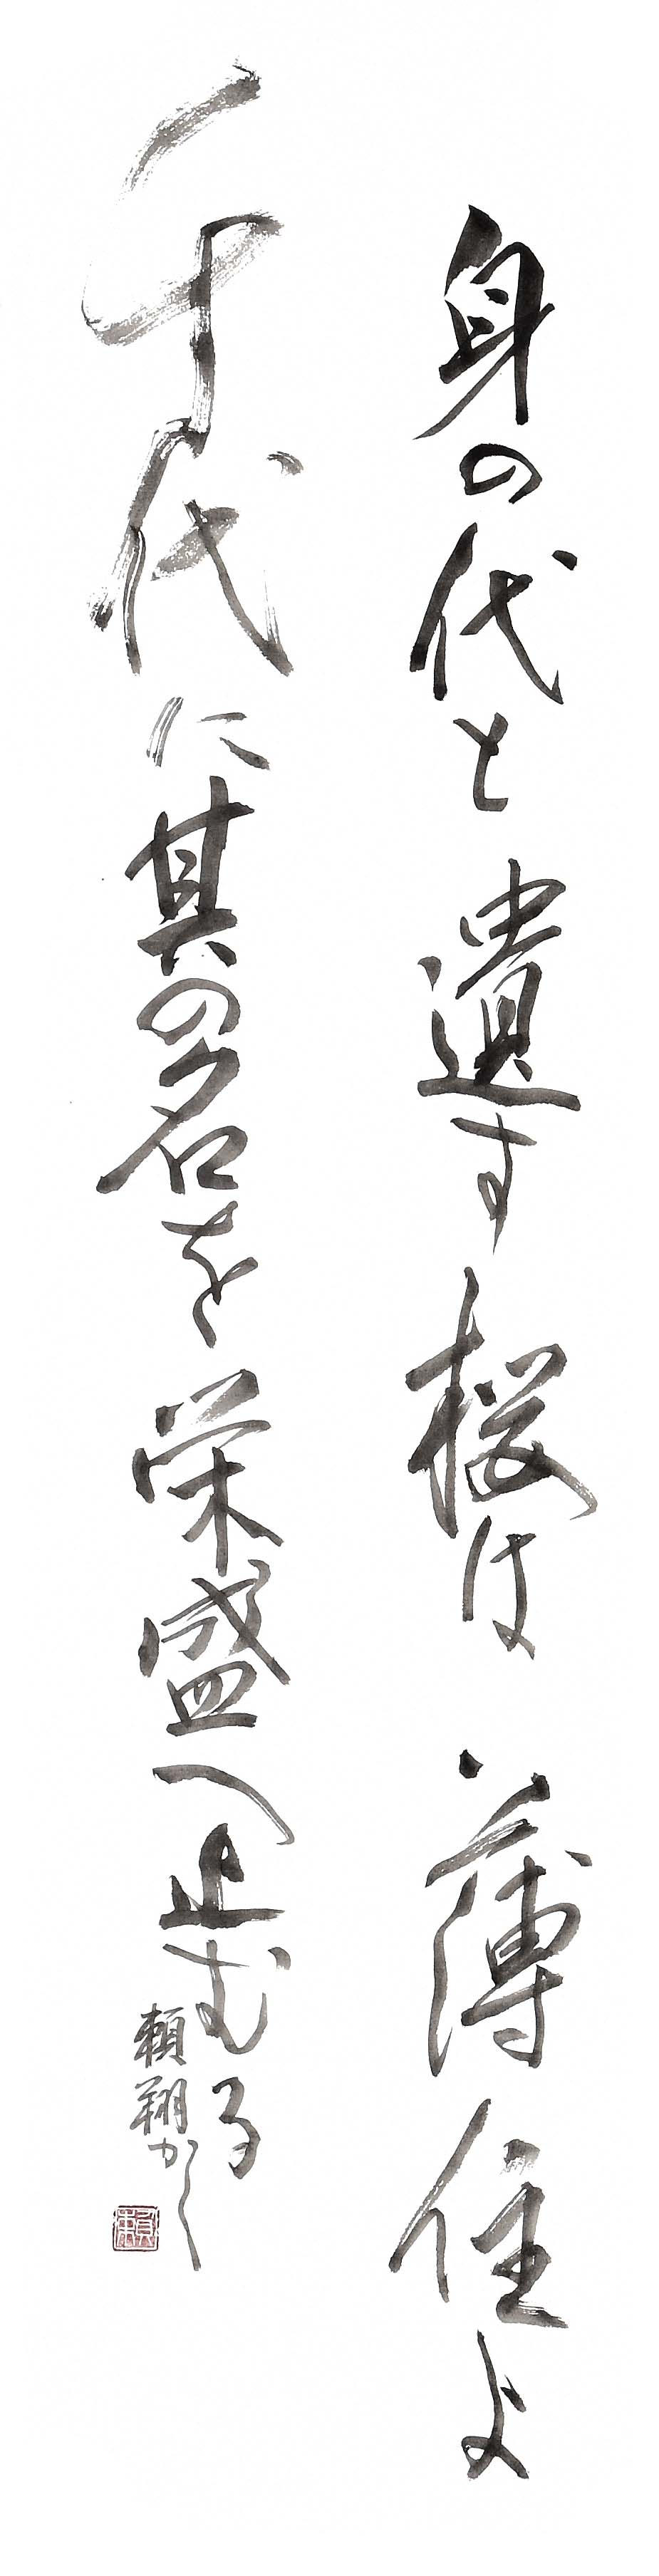 身の代と遺す桜は薄住よ
千代に其の名を栄盛へ止むる
頼翔かく
頼